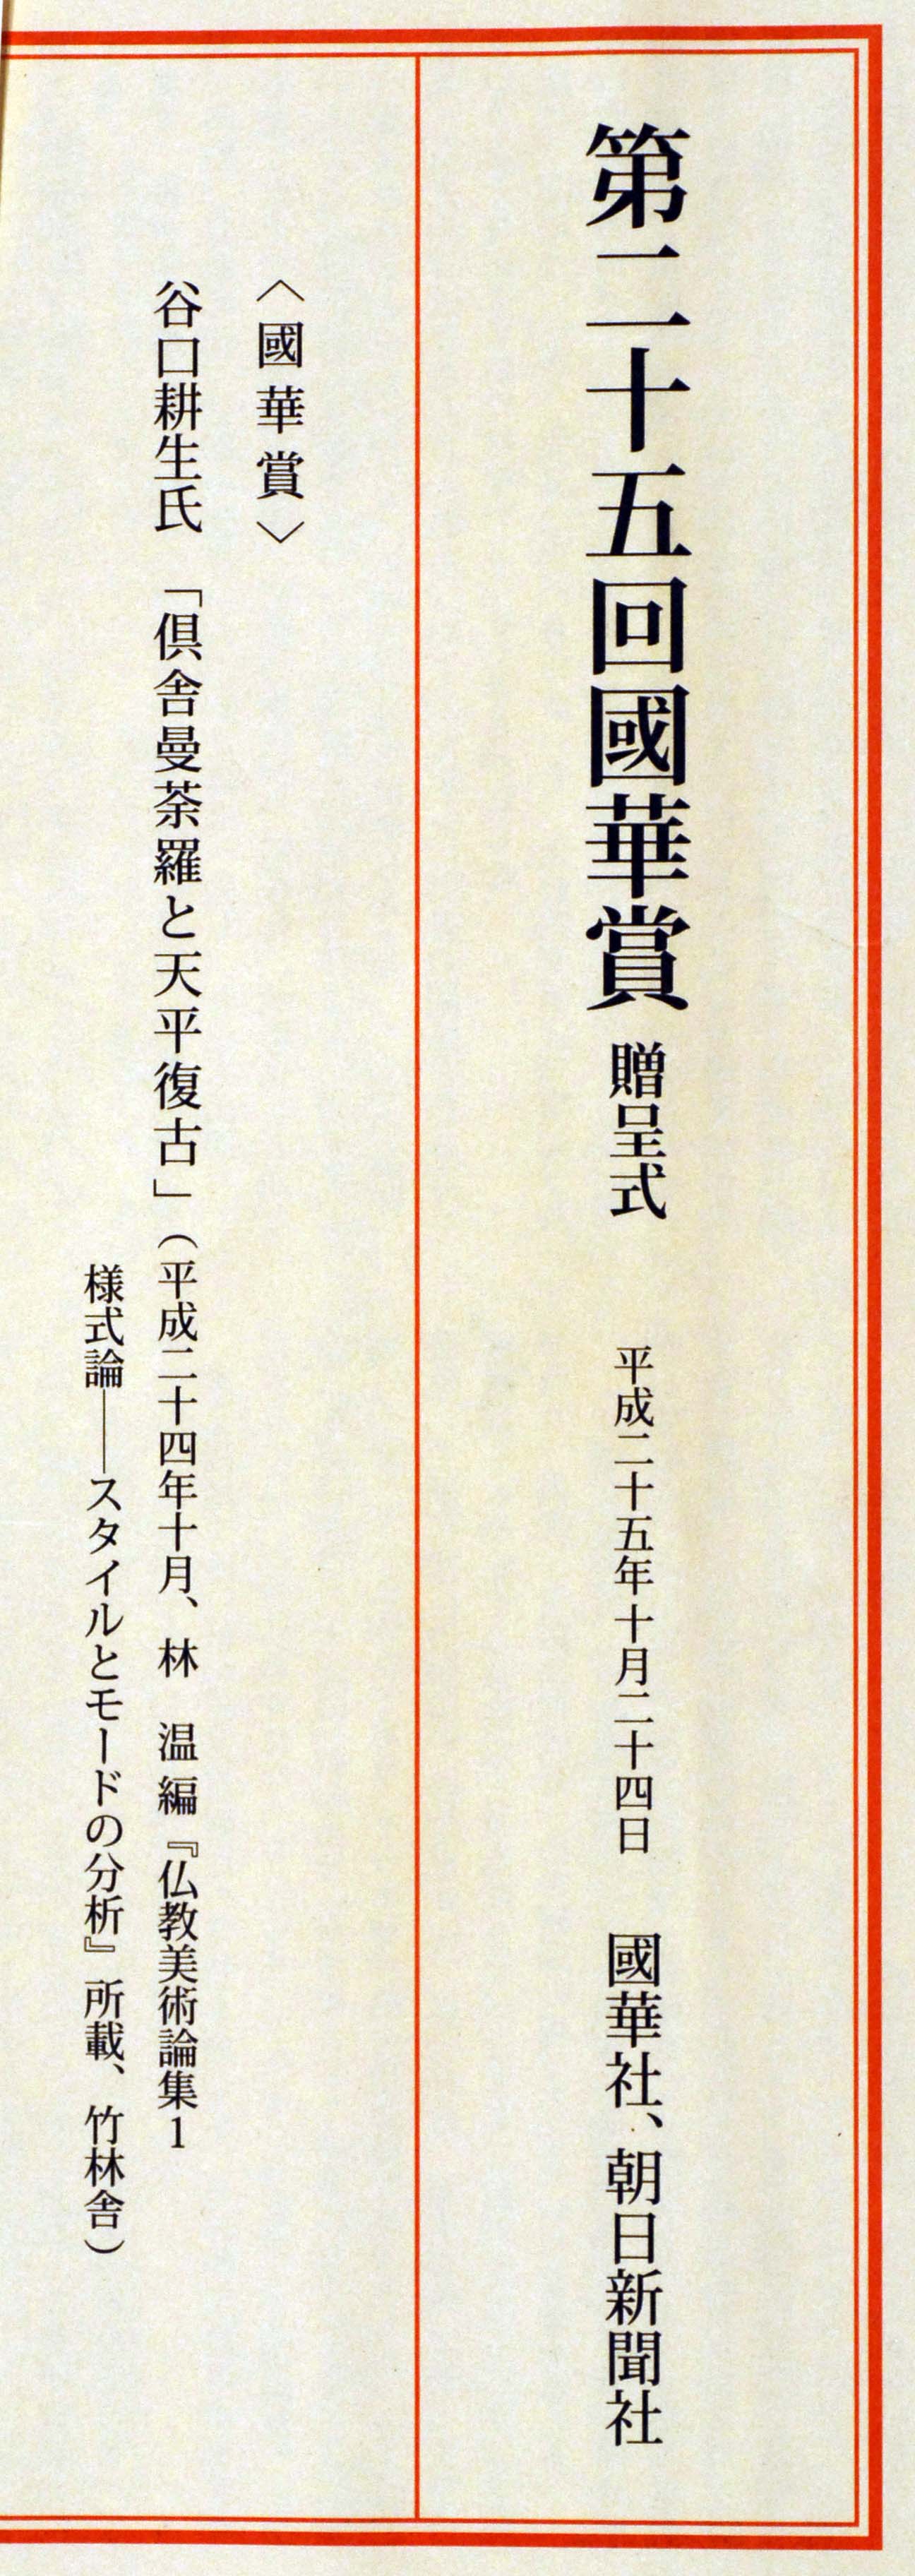 第二十五回國華賞 贈呈式 平成二十五年十月二十四日 國華社、朝日新聞社
〈國華賞〉
谷口耕生氏 「倶舎曼荼羅と天平復古」(平成二十四年十月、林 温編『仏教美術論集1
様式論――スタイルとモードの分析』所載、竹林舎)